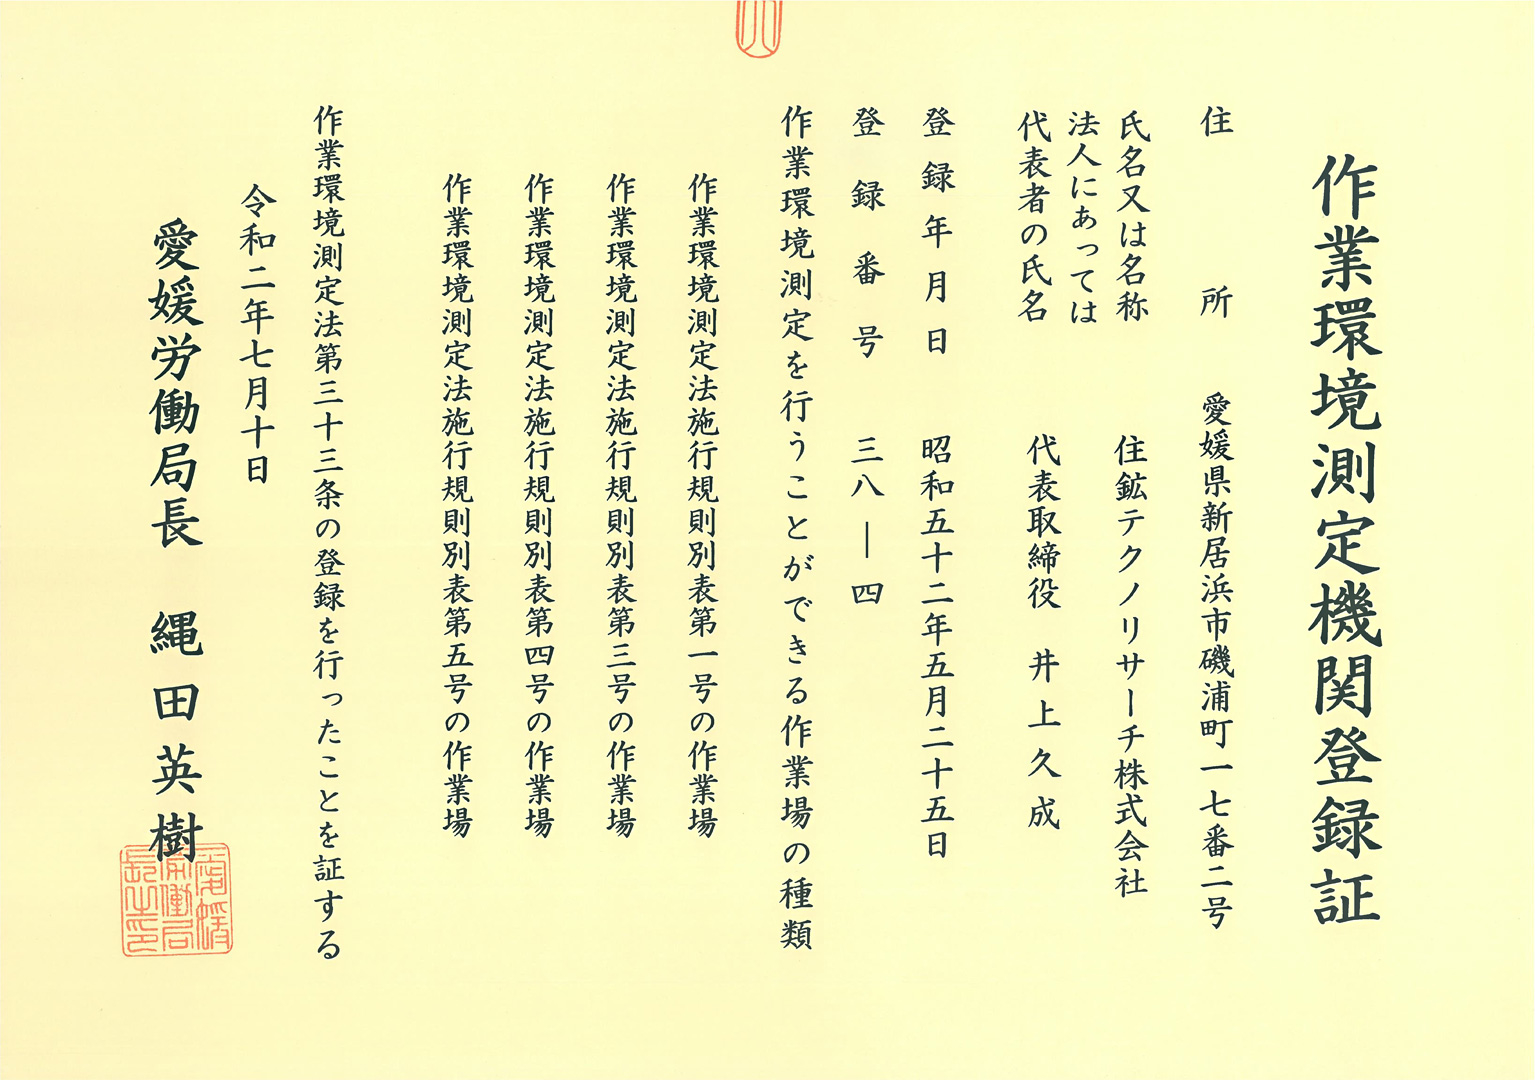 作業環境測定機関登録証
住所 愛媛県新居浜市磯浦町一七番二号
氏名又は名称 住鉱テクノリサーチ株式会社
法人にあっては
代表者の氏名 代表取締役 井上久成
登録年月日 昭和五十二年五月二十五日
登録番号 三八―四
作業環境測定を行うことができる作業場の種類
作業環境測定法施行規則別表第一号の作業場
作業環境測定法施行規則別表第三号の作業場
作業環境測定法施行規則別表第四号の作業場
作業環境測定法施行規則別表第五号の作業場
作業環境測定法第三十三条の登録を行ったことを証する
令和二年七月十日
愛媛労働局長 縄田英樹
愛媛
労働局
長之印